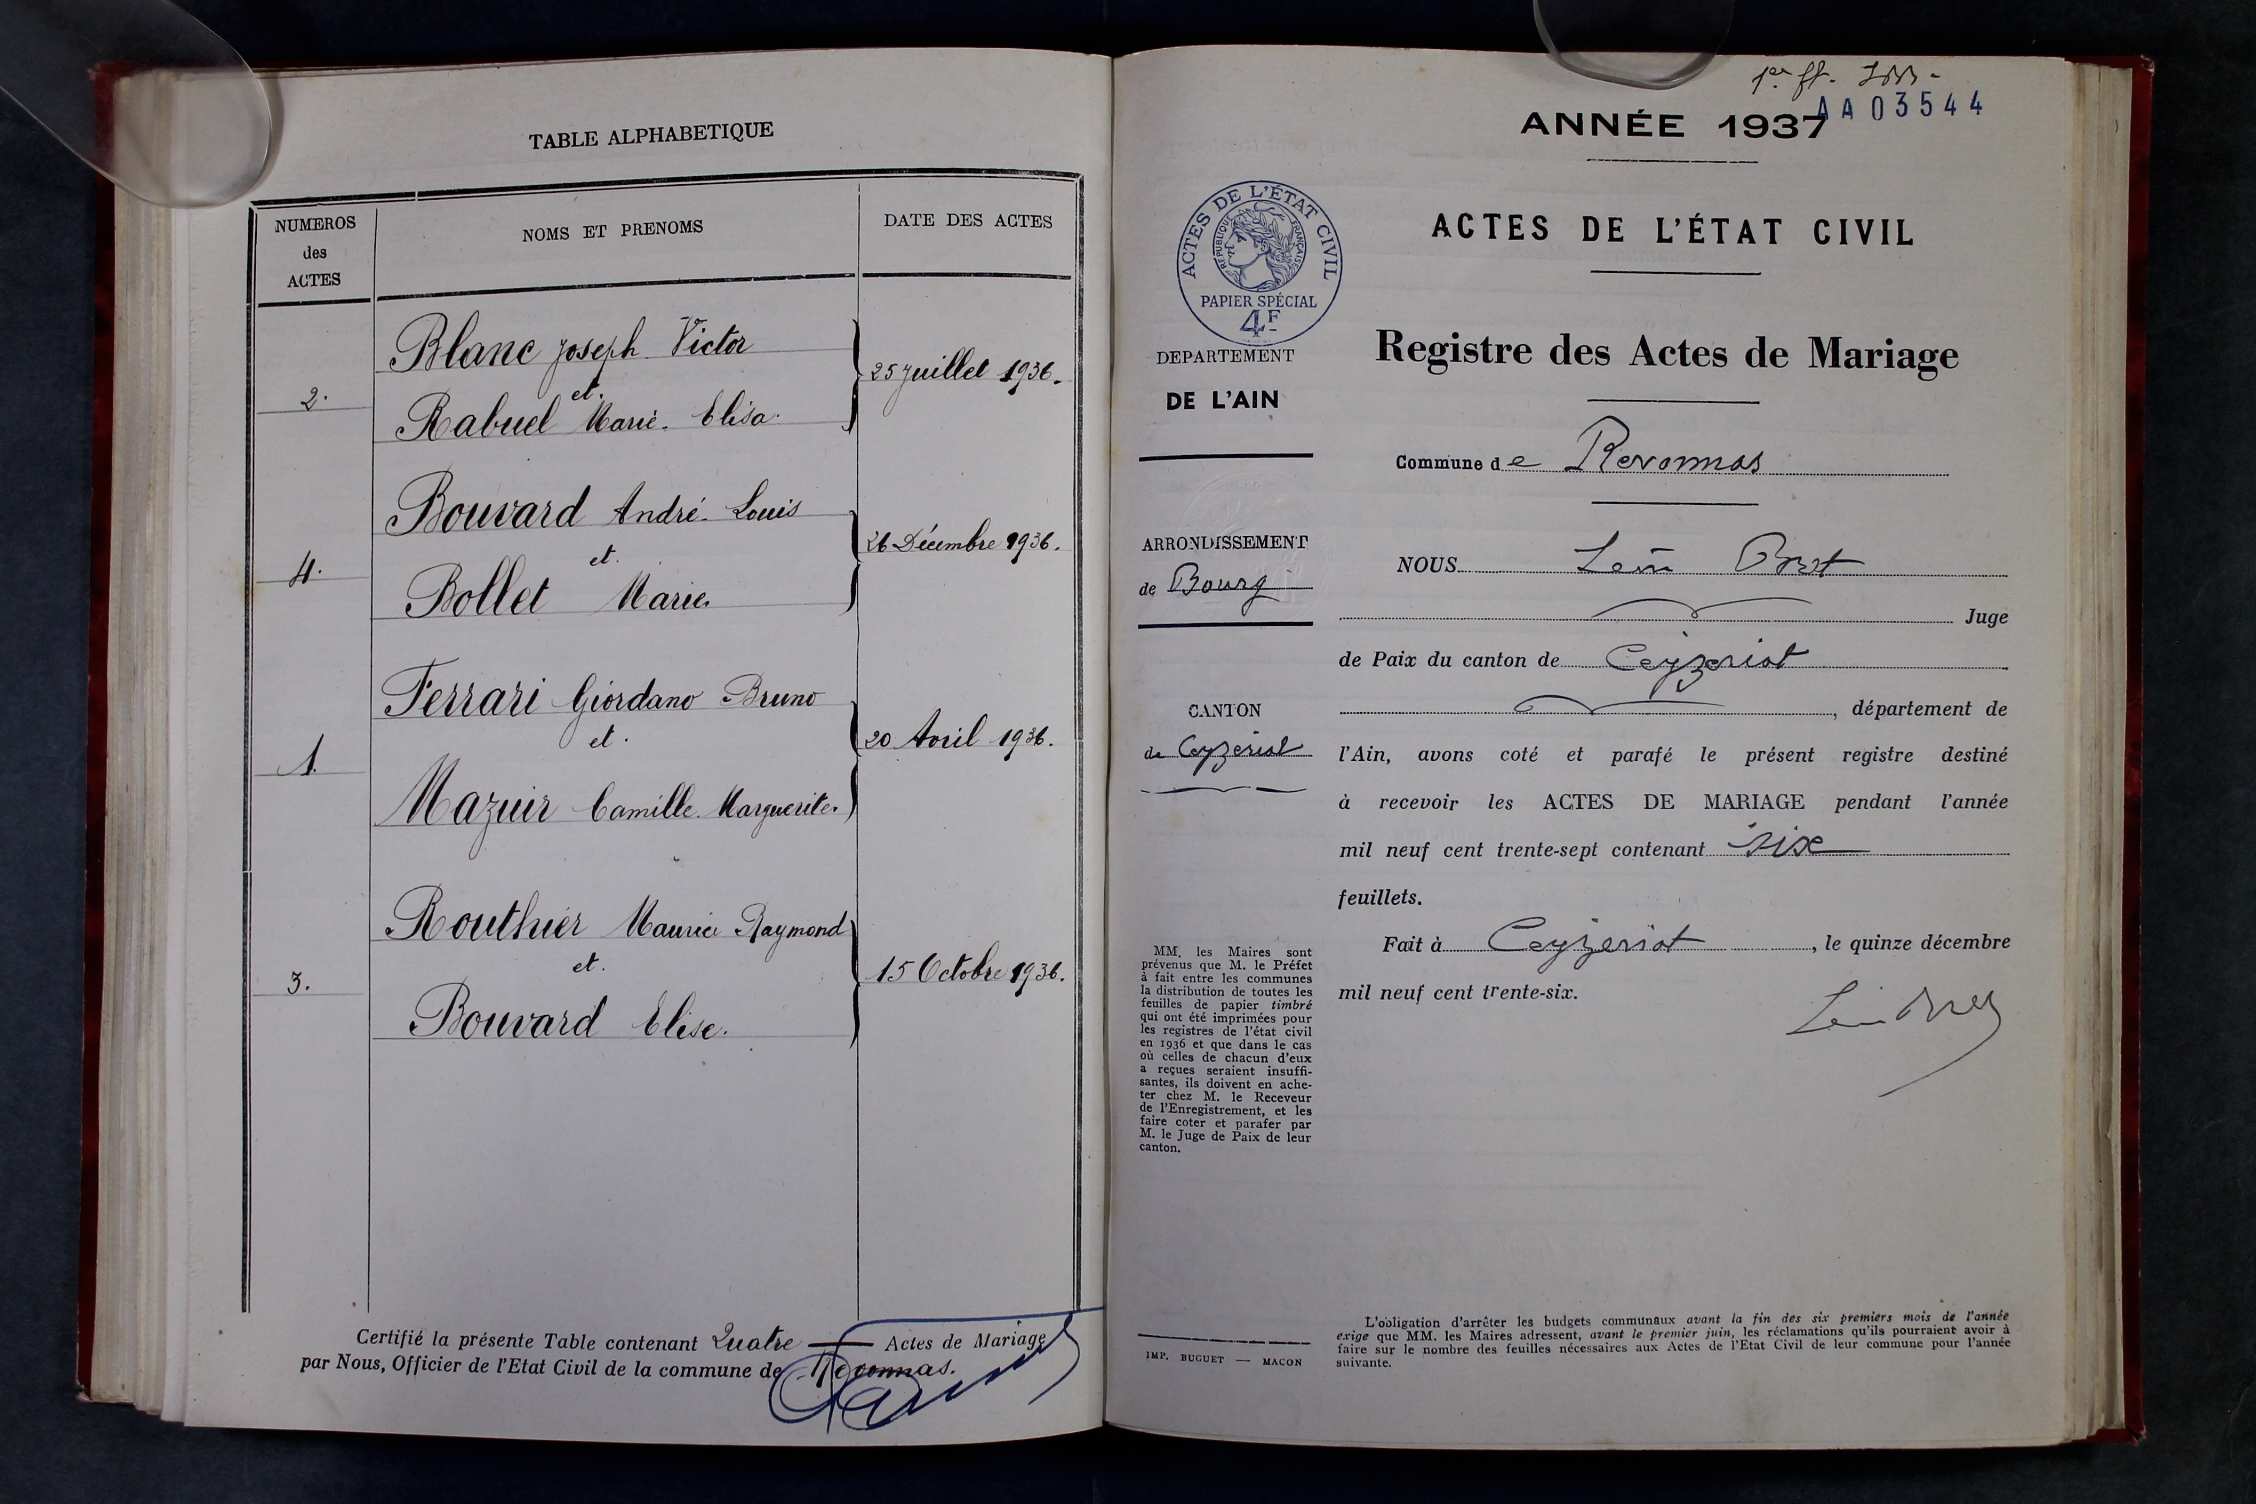 TABLE ALPHABETIQUE
NUMEROS
des
ACTES
NOMS ET PRENOMS
DATE DES ACTES
2.
Blanc Joseph Victor
et.
Rabuel Marie. Elisa.
25 juillet 1936.
4.
Bouvard André. Louis
et.
Bollet Marie.
26 Décembre 1936.
1.
Ferrari Giordano Bruno
et.
Mazuir Camille. Marguerite.
20 Avril 1936.
3.
Routhier Maurice Raymond
et.
Bouvard Elise.
15 Octobre 1936.
Certifié la présente Table contenant Quatre Actes de Mariage
par Nous, Officier de l'Etat Civil de la commune de Revonnas.
AA03544
ANNÉE 1937
ACTES DE L'ÉTAT CIVIL
Registre des Actes de Mariage
ACTES DE L'ÉTAT CIVIL
RÉPUBLIQUE FRANÇAISE
PAPIER SPÉCIAL
4F
DEPARTEMENT
DE L'AIN
ARRONDISSEMENT
de Bourg
CANTON
de Ceyzeriat
MM. les Maires sont
prévenus que M. le Préfet
à fait entre les communes
la distribution de toutes les
feuilles de papier timbré
qui ont été imprimées pour
les registres de l'état civil
en 1936 et que dans le cas
où celles de chacun d'eux
a reçues seraient insuffi-
santes, ils doivent en ache-
ter chez M. le Receveur
de l'Enregistrement, et les
faire coter et parafer par
M. le Juge de Paix de leur
canton.
IMP. BUGUET — MACON
Commune de Revonnas
NOUS Léon
Juge
de Paix du canton de Ceyzeriat
, département de
l'Ain, avons coté et parafé le présent registre destiné
à recevoir les ACTES DE MARIAGE pendant l'année
mil neuf cent trente-sept contenant six
feuillets.
Fait à Ceyzeriat , le quinze décembre
mil neuf cent trente-six.
L'obligation d'arrêter les budgets communaux avant la fin des six premiers mois de l'année
exige que MM. les Maires adressent, avant le premier juin, les réclamations qu'ils pourraient avoir à
faire sur le nombre des feuilles nécessaires aux Actes de l'Etat Civil de leur commune pour l'année
suivante.